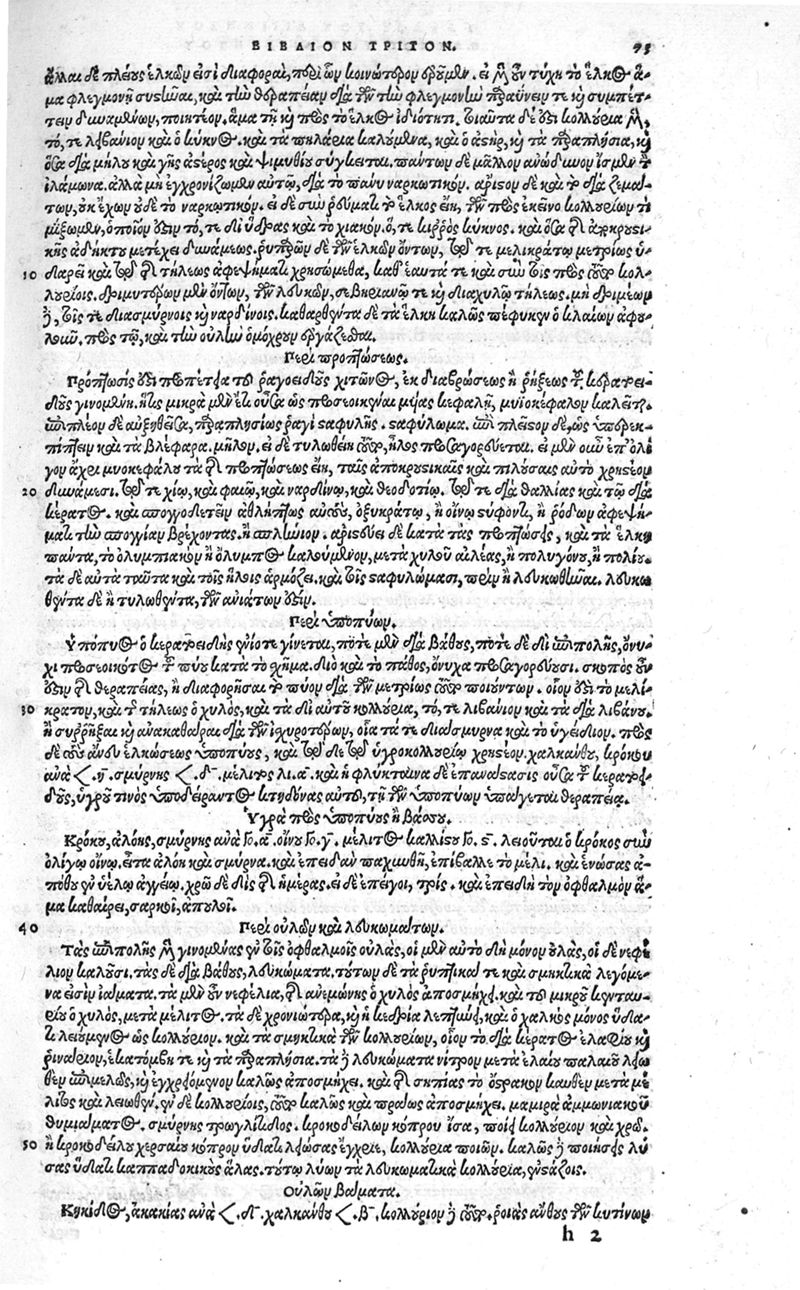 ΒΙΒΛΙΟΝ ΤΡΙΤΟΝ. 43
ἄλλαι δὲ πλείους ἑλκῶν εἰσὶ διαφοραὶ, περὶ ὧν κοινώτερον ἐροῦμεν. εἰ μὲν οὖν τύχῃ τὸ ἕλκος ἅ-
μα φλεγμονῇ συστᾶν, καὶ τὴν θεραπείαν διὰ τῶν τὴν φλεγμονὴν πραΰνειν τε καὶ συμπέτ-
τειν δυναμένων, ποιητέον. ἅμα τῇ καὶ πρὸς τὸ ἕλκος ἰδιότητι. τοιαῦτα δέ ἐστι κολλύρια μὲν,
τό, τε λιβανιον καὶ ὁ κύκνος. καὶ τὰ πηλάρια καλούμενα, καὶ ὁ ἀστὴρ, καὶ τὰ παραπλήσια, καὶ
ὅσα διὰ μήλου καὶ γῆς ἀστέρος καὶ ψιμυθίου σύγκειται. πάντων δὲ μᾶλλον ἀνώδυνον ἴσμεν τὸ
φιλάμωνα. ἀλλὰ μὴ ἐγχρονίζωμεν αὐτῷ, διὰ τὸ πάνυ ναρκωτικόν. ἄριστον δὲ καὶ τὸ διὰ ζεμα-
των, οὐκ ἔχων οὐδὲ τὸ ναρκωτικόν. εἰ δὲ σὺν ῥεύματι τὸ ἕλκος εἴη, τῶν πρὸς ἐκεῖνο κολλυρίων τι
μίξωμεν, ὁποῖόν ἐστιν τό, τε δι ὕδρας καὶ τὸ χιακόν. ὅ, τε κιρρὸς κύκνος. καὶ ὅσα τῆς ἀποκρουστι-
κῆς ἀδήκτου μετέχει δυνάμεως. ῥυπαρῶν δὲ τῶν ἑλκῶν ὄντων, τῷ τε μελικράτῳ μετρίως ὑ-
10 δαρεῖ καὶ τῷ τῆς τήλεως ἀφεψήματι χρησώμεθα, καθ' ἑαυτά τε καὶ σὺν τοῖς πρὸς τοῦτο κολ-
λυρίοις. δριμυτέρων μὲν ὄντων, τῶν λευκῶν, σεβηριανῷ τε καὶ διαχυλῷ τήλεως. μὴ δριμέων
δὲ, τοῖς τε διασμύρνοις καὶ ναρδίνοις. καθαρθέντα δὲ τὰ ἕλκη καλῶς πέφυκεν ὁ κλαίων ἀφου-
λοῦν. πρὸς τῷ, καὶ τὴν οὐλὴν ὁμόχρουν ἐργάζεσθαι.
Περὶ προπτώσεως.
Πρόπτωσίς ἐστι προπέτεια τοῦ ῥαγοειδοῦς χιτῶνος, ἐκ διαβρώσεως ἢ ῥήξεως τοῦ κερατοει-
δοῦς γινομένη. ἥτις μικρὰ μὲν ἔτι οὖσα ὡς προσεοικέναι μυίας κεφαλῇ, μυϊοκέφαλον καλεῖται.
ἐπὶ πλέον δὲ αὐξηθεῖσα, παραπλησίως ῥαγὶ σταφυλῆς. σταφύλωμα. ἐπὶ πλεῖον δὲ, ὡς ὑπερεκ-
πίπτειν καὶ τὰ βλέφαρα. μῆλον. εἰ δὲ τυλωθείη τοῦτο, ἧλος προσαγορεύεται. εἰ μὲν οὖν ἐπ' ὀλί-
γον ἄχρι μυοκεφάλου τὰ τῆς προπτώσεως εἴη, ταῖς ἀποκρουστικαῖς καὶ πιλούσαις αὐτὸ χρηστέον
20 δυνάμεσι. τῷ τε χίῳ, καὶ φαιῷ, καὶ ναρδίνῳ, καὶ θεοδοτίῳ. τῷ τε διὰ θαλλίας καὶ τῷ διὰ
κέρατος. καὶ σπογγοδετεῖν ἀθλήπτως αὐτοὺς, ὀξυκράτῳ, ἢ οἴνῳ στύφοντι, ἢ ῥόδων ἀφεψή-
ματι τὴν σπογγίαν βρέχοντας. ἢ σπλήνιον. ἀριστεύει δὲ κατὰ τὰς προπτώσεις, καὶ τὰ ἕλκη
πάντα, τὸ ὀλυμπιακὸν ἢ ὄλυμπος καλούμενον, μετὰ χυλοῦ ἁλέας, ἢ πολυγόνου, ἢ πολίου.
τὰ δὲ αὐτὰ ταῦτα καὶ τοῖς ἥλοις ἁρμόζει. καὶ τοῖς σταφυλώμασι, πρὶν ἢ λευκωθῆναι. λευκω
θέντα δὲ ἢ τυλωθέντα, τῶν ἀνιάτων ἐστίν.
Περὶ ὑποπύων.
Ὑπόπυος ὁ κερατοειδὴς ἐνίοτε γίνεται, ποτὲ μὲν διὰ βάθους, ποτὲ δὲ δι ἐπιπολῆς, ὄνυ-
χι προσεοικότος τοῦ πύου κατὰ τὸ σχῆμα. διὸ καὶ τὸ πάθος, ὄνυχα προσαγορεύουσι. σκοπὸς οὖν
ἐστιν τῆς θεραπείας, ἢ διαφορῆσαι τὸ πύον διὰ τῶν μετρίως τοῦτο ποιούντων. οἷόν ἐστι τὸ μελί-
30 κρατον, καὶ τῆς τήλεως ὁ χυλὸς, καὶ τὰ δι αὐτοῦ κολλύρια, τό, τε λιβανιον καὶ τὰ διὰ λιβάνου.
ἢ συρρῆξαι καὶ ἀνακαθᾶραι διὰ τῶν ἰσχυροτέρων, οἷα τά τε διάσμυρνα καὶ τὸ ὑγείδιον. πρὸς
δὲ τοὺς ἄνευ ἑλκώσεως ὑποπύους, καὶ τῷδε τῷ ὑγροκολλυρίῳ χρηστέον. χαλκάνθου, κρόκου
ἀνὰ 𐅻. η. σμύρνης 𐅻. δ. μέλιτος λι. α. καὶ ἡ φλύκταινα δὲ ἐπανάστασις οὖσα τοῦ κερατοει-
δοῦς, ὑγροῦ τινὸς ὑποδείραντος κτηδόνας αὐτοῦ, τῇ τῶν ὑποπύων ὑπάγεται θεραπείᾳ.
Ὑγρὰ πρὸς ὑποπύους ἢ βάσσου.
Κρόκου, ἀλόης, σμύρνης ἀνὰ 𐆄. α. οἴνου 𐆄. γ. μέλιτος καλλίστου 𐆄. ϛ. λειοῦται ὁ κρόκος σὺν
ὀλίγῳ οἴνῳ. εἶτα ἀλόη καὶ σμύρνα. καὶ ἐπειδὰν παχυνθῇ, ἐπίβαλλε τὸ μέλι. καὶ ἑνώσας ἀ-
πόθου ἐν ὑελῷ ἀγγείῳ. χρῶ δὲ δὶς τῆς ἡμέρας. εἰ δὲ ἐπείγοι, τρίς. καὶ ἐπειδὴ τὸν ὀφθαλμὸν ἅ-
μα καθαίρει, σαρκοῖ, ἀπουλοῖ.
40 Περὶ οὐλῶν καὶ λευκωμάτων.
Τὰς ἐπιπολῆς μὲν γινομένας ἐν τοῖς ὀφθαλμοῖς οὐλὰς, οἱ μὲν αὐτὸ δὴ μόνον οὐλὰς, οἱ δὲ νεφέ
λιον καλοῦσι. τὰς δὲ διὰ βάθους, λευκώματα. τούτων δὲ τὰ ῥυπτικά τε καὶ σμηκτικὰ λεγόμε-
να εἰσὶν ἰάματα. τὰ μὲν οὖν νεφέλια, τῆς ἀνεμώνης ὁ χυλὸς ἀποσμήχει. καὶ τοῦ μικροῦ κενταυ-
ρίου ὁ χυλὸς, μετὰ μέλιτος. τὰ δὲ χρονιώτερα, καὶ ἡ κεδρία λεπτύνει, καὶ ὁ χαλκὸς μόνος ὕδα-
τι λειούμενος ὡς κολλύριον. καὶ τὰ σμηκτικὰ τῶν κολλυρίων, οἷον τὸ διὰ κέρατος ἐλαφείου καὶ
ῥινάριον, ἑκατόμβη τε καὶ τὰ παραπλήσια. τὰ δὲ λευκώματα νίτρον μετὰ ἐλαίου παλαιοῦ λειω
θὲν ἐπιμελῶς, καὶ ἐγχριόμενον καλῶς ἀποσμήχει. καὶ τῆς σηπίας τὸ ὄστρακον καυθὲν μετὰ μέ
λιτος καὶ λειωθὲν. ἐν δὲ κολλυρίοις, τοῦτο καλῶς καὶ πράως ἀποσμήχει. μαμιρὰ ἀμμωνιακοῦ
θυμιάματος. σμύρνης τρωγλίτιδος. κροκοδείλων κόπρου ἴσα, ποίει κολλύριον καὶ χρῶ.
50 ἢ κροκοδείλου χερσαίου κόπρον ὕδατι λειώσας ἔγχριε, κολλύρια ποιῶν. καλῶς δὲ ποιήσεις λύ
σας ὕδατι καππαδοκικοὺς ἅλας. τούτῳ λύων τὰ λευκωματικὰ κολλύρια, ἐνστάζοις.
Οὐλῶν βάμματα.
Κηκίδος, ἀκακίας ἀνὰ 𐅻. α. χαλκάνθου 𐅻. β. κολλύριον δὲ τοῦτο. ῥοιᾶς ἄνθους τῶν κυτίνων
h 2